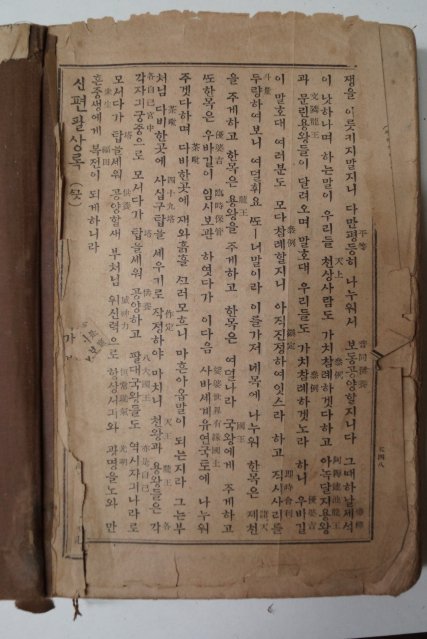 쟁을이룻지말지니 다만평등히 나누워서 보통공양할지니다 그때하날셰석
이 낫하나며 하는말이 우리들 천상사람도 가치참례하겟다하고 아녹달지용왕
과 문린용왕들이 달려오며 말호대 우리들도 가치참례하겟노라 하니 우바길
이 말호대 여러분도 모다참례할지니 아직진정하여잇스라 하고 직시사리를
두량하여보니 여덜휘요 또너말이라 이를가져 네목에 나누워 한목은 제천
을 주게하고 한목은 용왕을 주게하고 한목은 여덜나라 국왕에게 주게하고
또한목은 우바길이 임시보관 하엿다가 이다음 사바세계유연국토에 나누워
주겟다하며 다비한곳에 재와흙흘 스러모흐니 마흔아옵말이 되는지라 그는부
처님 다비한곳에 사십구탑을 셰우기로 작정하야 마치니 천왕과 용왕들은 각
각자긔궁중으로 모서다가 탑을셰워 공양하고 팔대국왕들도 역시자긔나라로
모서다가 탑을셰워 공양할새 부처님 위신력으로 항상서긔와 광명을노와 만
흔중생에게 복전이 되게하니라
신편팔상록 (終)